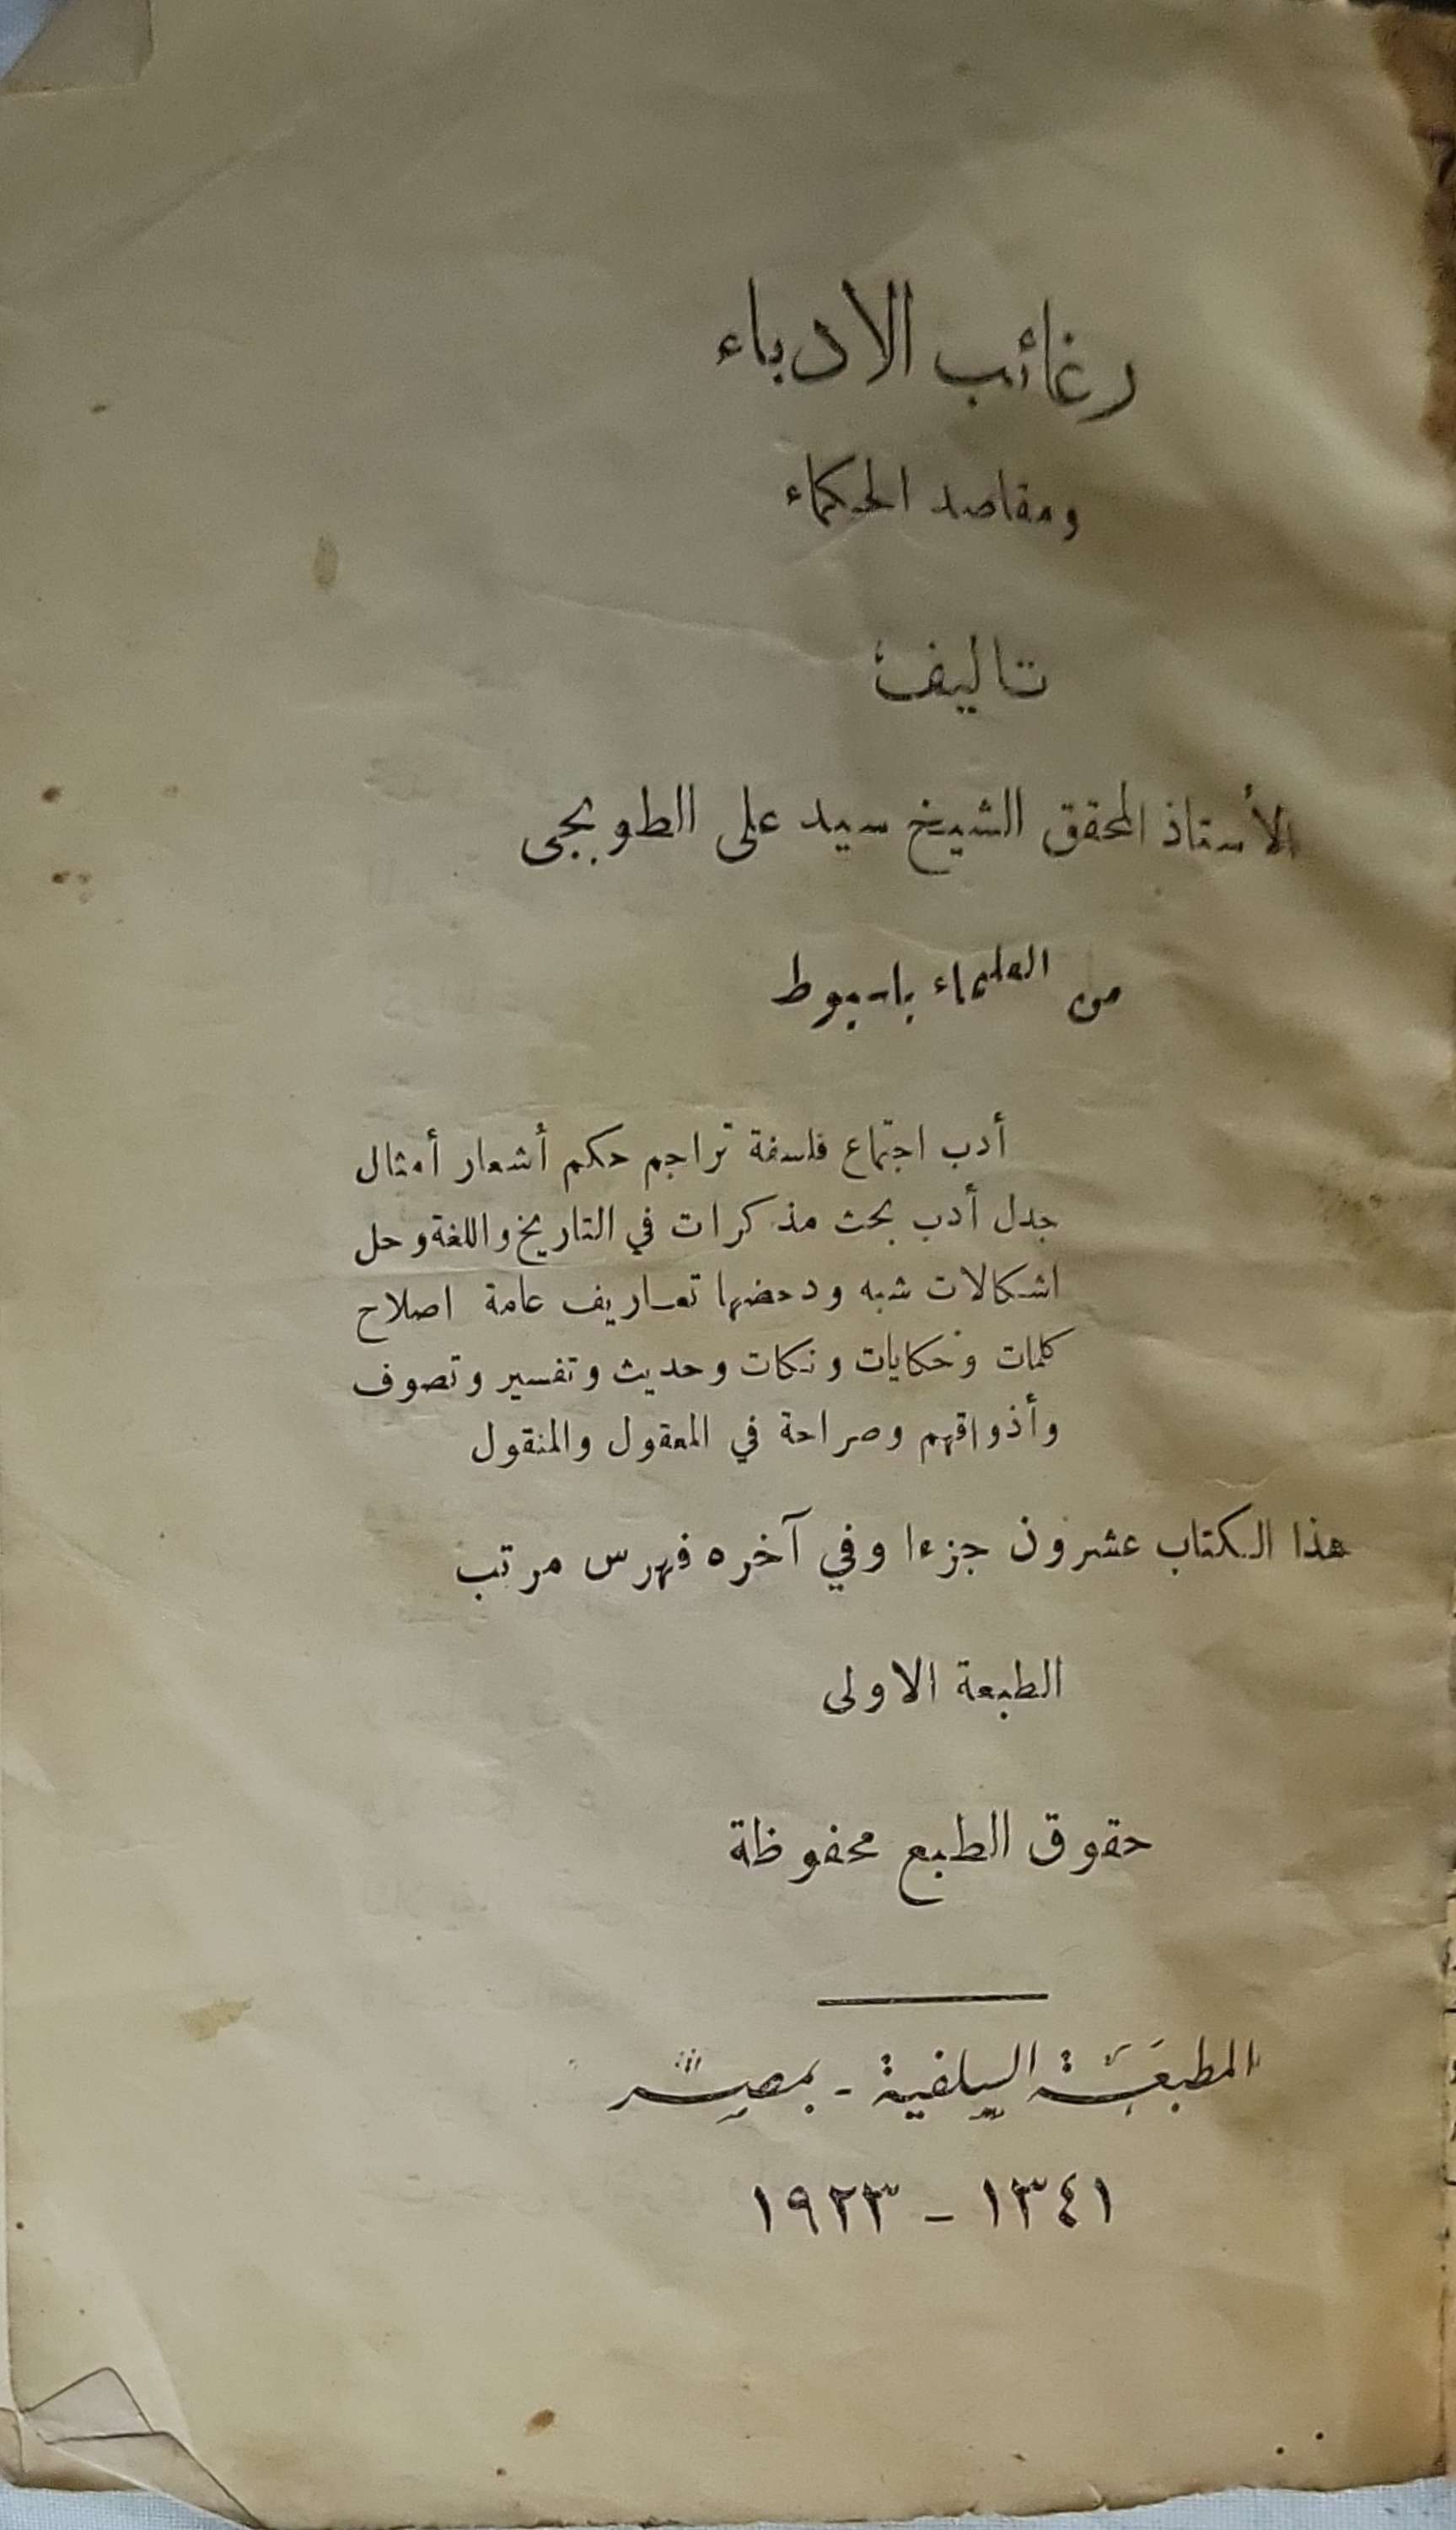 رغائب الادباء
ومقاصد الحكماء
تاليف
الأستاذ المحقق الشيخ سيد على الطوبجى
من العلماء باسيوط
أدب اجتماع فلسفة تراجم حكم أشعار أمثال
جدل أدب بحث مذكرات في التاريخ واللغة وحل
اشكالات شبه ودحضها تعاريف عامة اصلاح
كلمات وحكايات ونكات وحديث وتفسير وتصوف
وأذواقهم وصراحة في المعقول والمنقول
هذا الكتاب عشرون جزءا وفي آخره فهرس مرتب
الطبعة الاولى
حقوق الطبع محفوظة
المطبعة السلفية - بمصر
١٣٤١ - ١٩٢٣